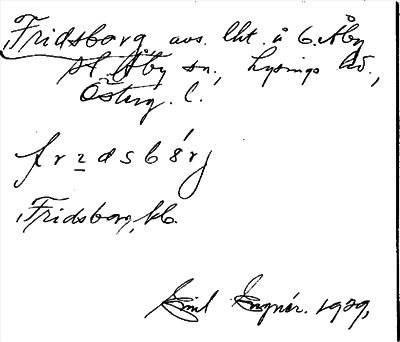 Fridsborg avs. lht. å 6. Åby
St. Åby sn, Lysings hd.,
Österg. l.
frɩdsbǒrj
Fridsborg, kb.
Emil Engnér. 1929,